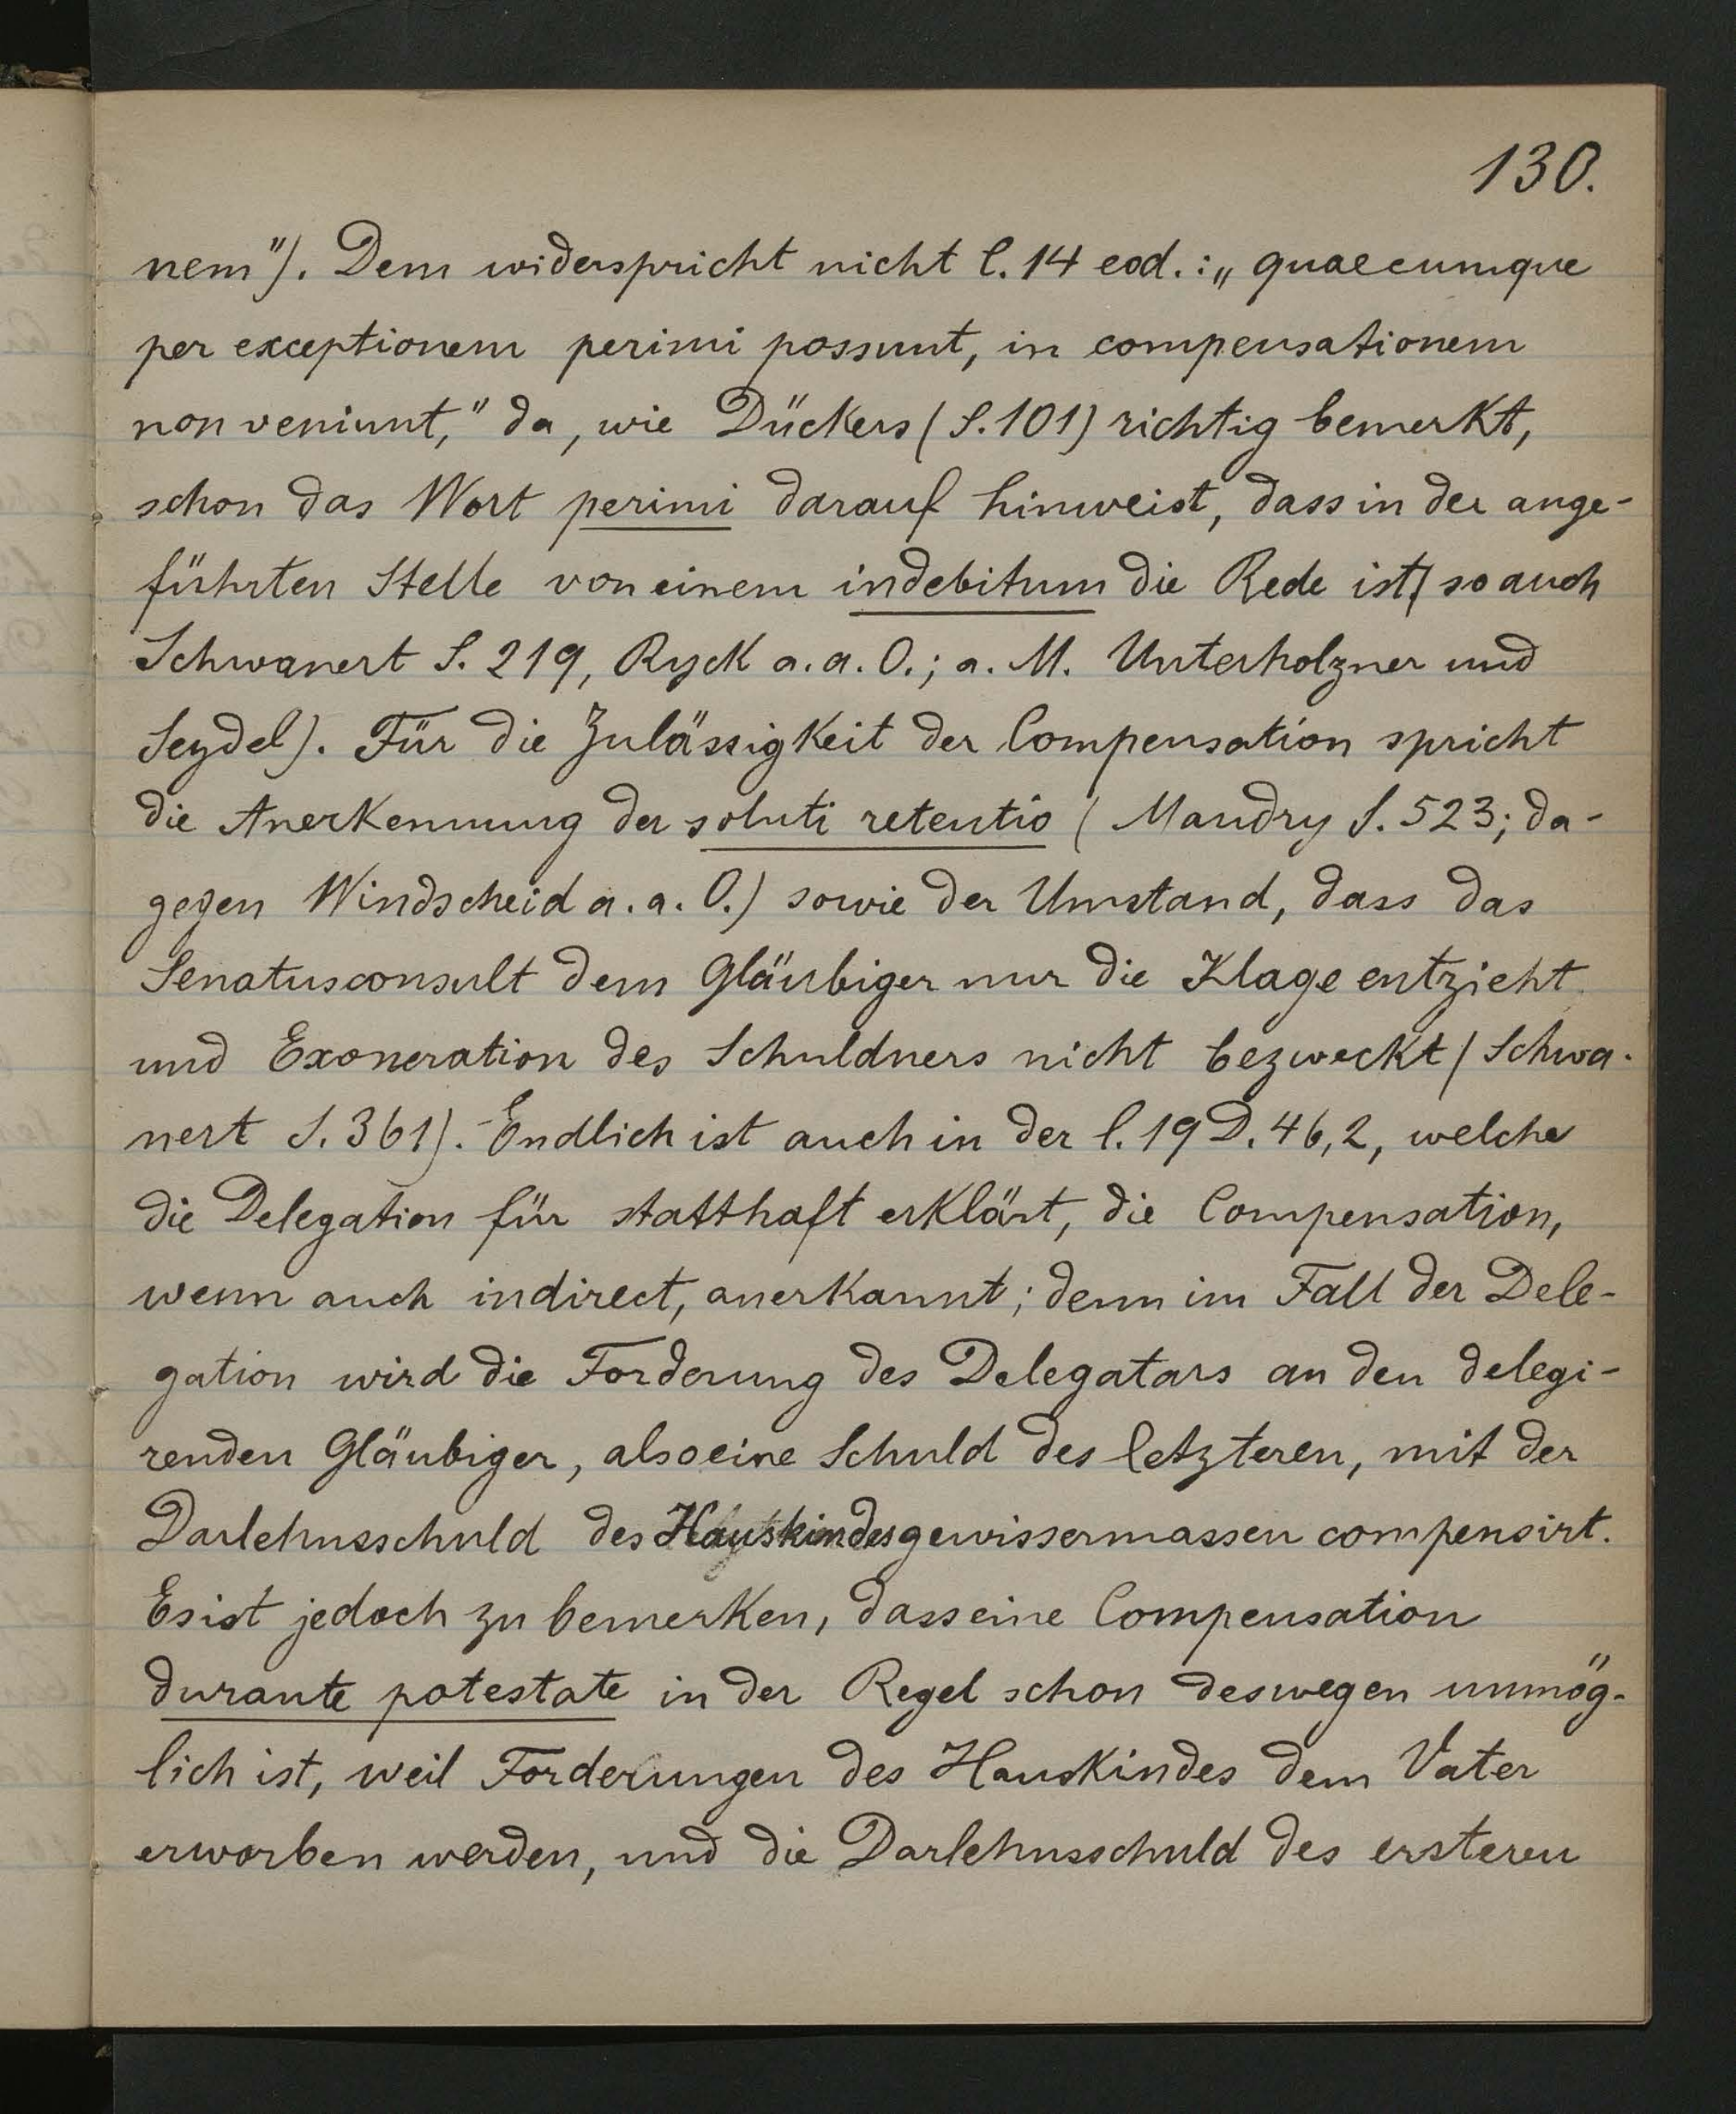 130.
nem"). Dem widerspricht nicht l. 14 eod.: „quaecumque
per exceptionem perimi possunt, in compensationem
non veniunt," da, wie Dückers (S. 101) richtig bemerkt,
schon das Wort perimi darauf hinweist, dass in der ange-
führten Stelle von einem indebitum die Rede ist (so auch
Schwanert S. 219, Ryck a. a. O.; a. M. Unterholzner und
Seydel). Für die Zulässigkeit der Compensation spricht
die Anerkennung der soluti retentio (Mandry S. 523; da-
gegen Windscheid a. a. O.) sowie der Umstand, dass das
Senatusconsult dem Gläubiger nur die Klage entzieht
und Exoneration des Schuldners nicht bezweckt (Schwa-
nert S. 361). Endlich ist auch in der l. 19 D. 46,2, welche
die Delegation für statthaft erklärt, die Compensation,
wenn auch indirect, anerkannt; denn im Fall der Dele-
gation wird die Forderung des Delegatars an den delegi-
renden Gläubiger, also eine Schuld des letzteren, mit der
Darlehnsschuld des Hauskindes gewissermassen compensirt.
Es ist jedoch zu bemerken, dass eine Compensation
durante potestate in der Regel schon deswegen unmög-
lich ist, weil Forderungen des Hauskindes dem Vater
erworben werden, und die Darlehnsschuld des ersteren